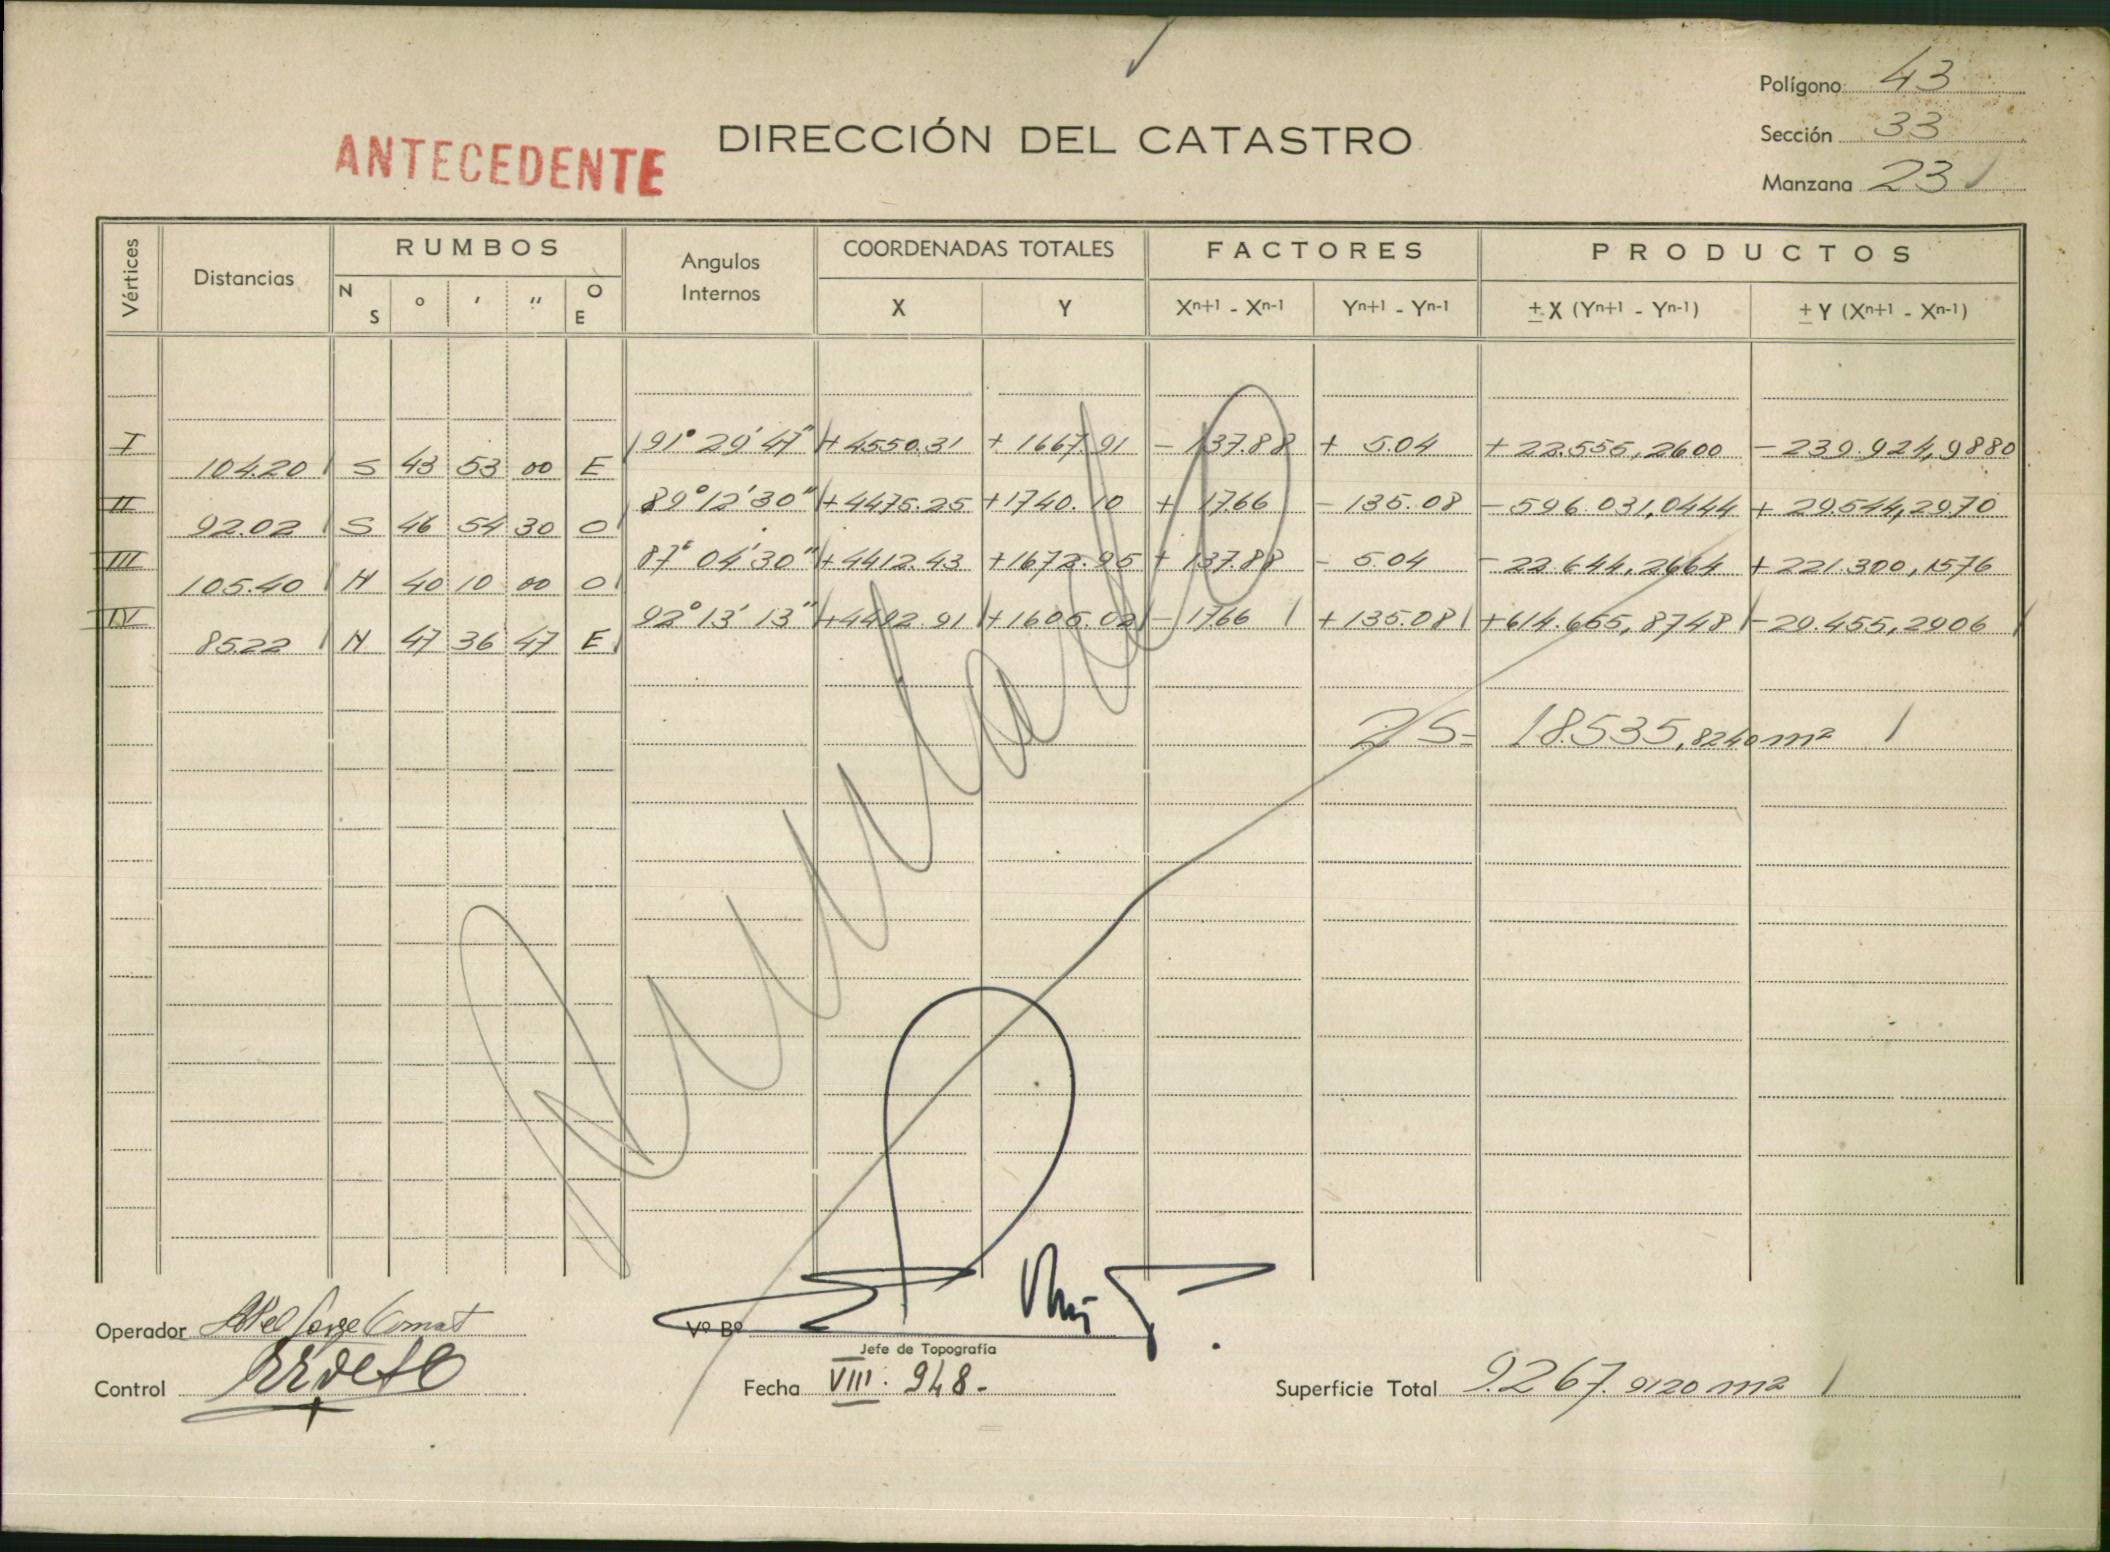 Polígono 43
ANTECEDENTE DIRECCIÓN DEL CATASTRO
Sección 33
Manzana 23
Vértices Distancias RUMBOS Angulos Internos COORDENADAS TOTALES FACTORES PRODUCTOS
N S ° ' " O E X Y Xn+1 - Xn-1 Yn+1 - Yn-1 ± X (Yn+1 - Yn-1) ± Y (Xn+1 - Xn-1)
I 91° 29' 47" + 4550.31 + 1667.91 - 137.88 + 5.04 + 22.555,2600 - 239.924,9880
104.20 S 43 53 00 E
II 89° 12' 30" + 4475.25 + 1740.10 + 1766 - 135.08 - 596.031,0444 + 29.544,2970
92.02 S 46 54 30 O
III 87° 04' 30" + 4412.43 + 1672.95 + 137.88 - 5.04 - 22.644,2664 + 221.300,1576
105.40 N 40 10 00 O
IV 92° 13' 13" + 4492.91 + 1605.02 - 1766 + 135.08 + 614.665,8748 - 29.455,2906
85.22 N 47 36 47 E
2S= 18.535,8240 m²
Anulado
Operador
Vº Bº
Jefe de Topografía
Control
Fecha VIII. 948.-
Superficie Total 9.267.9120 m²